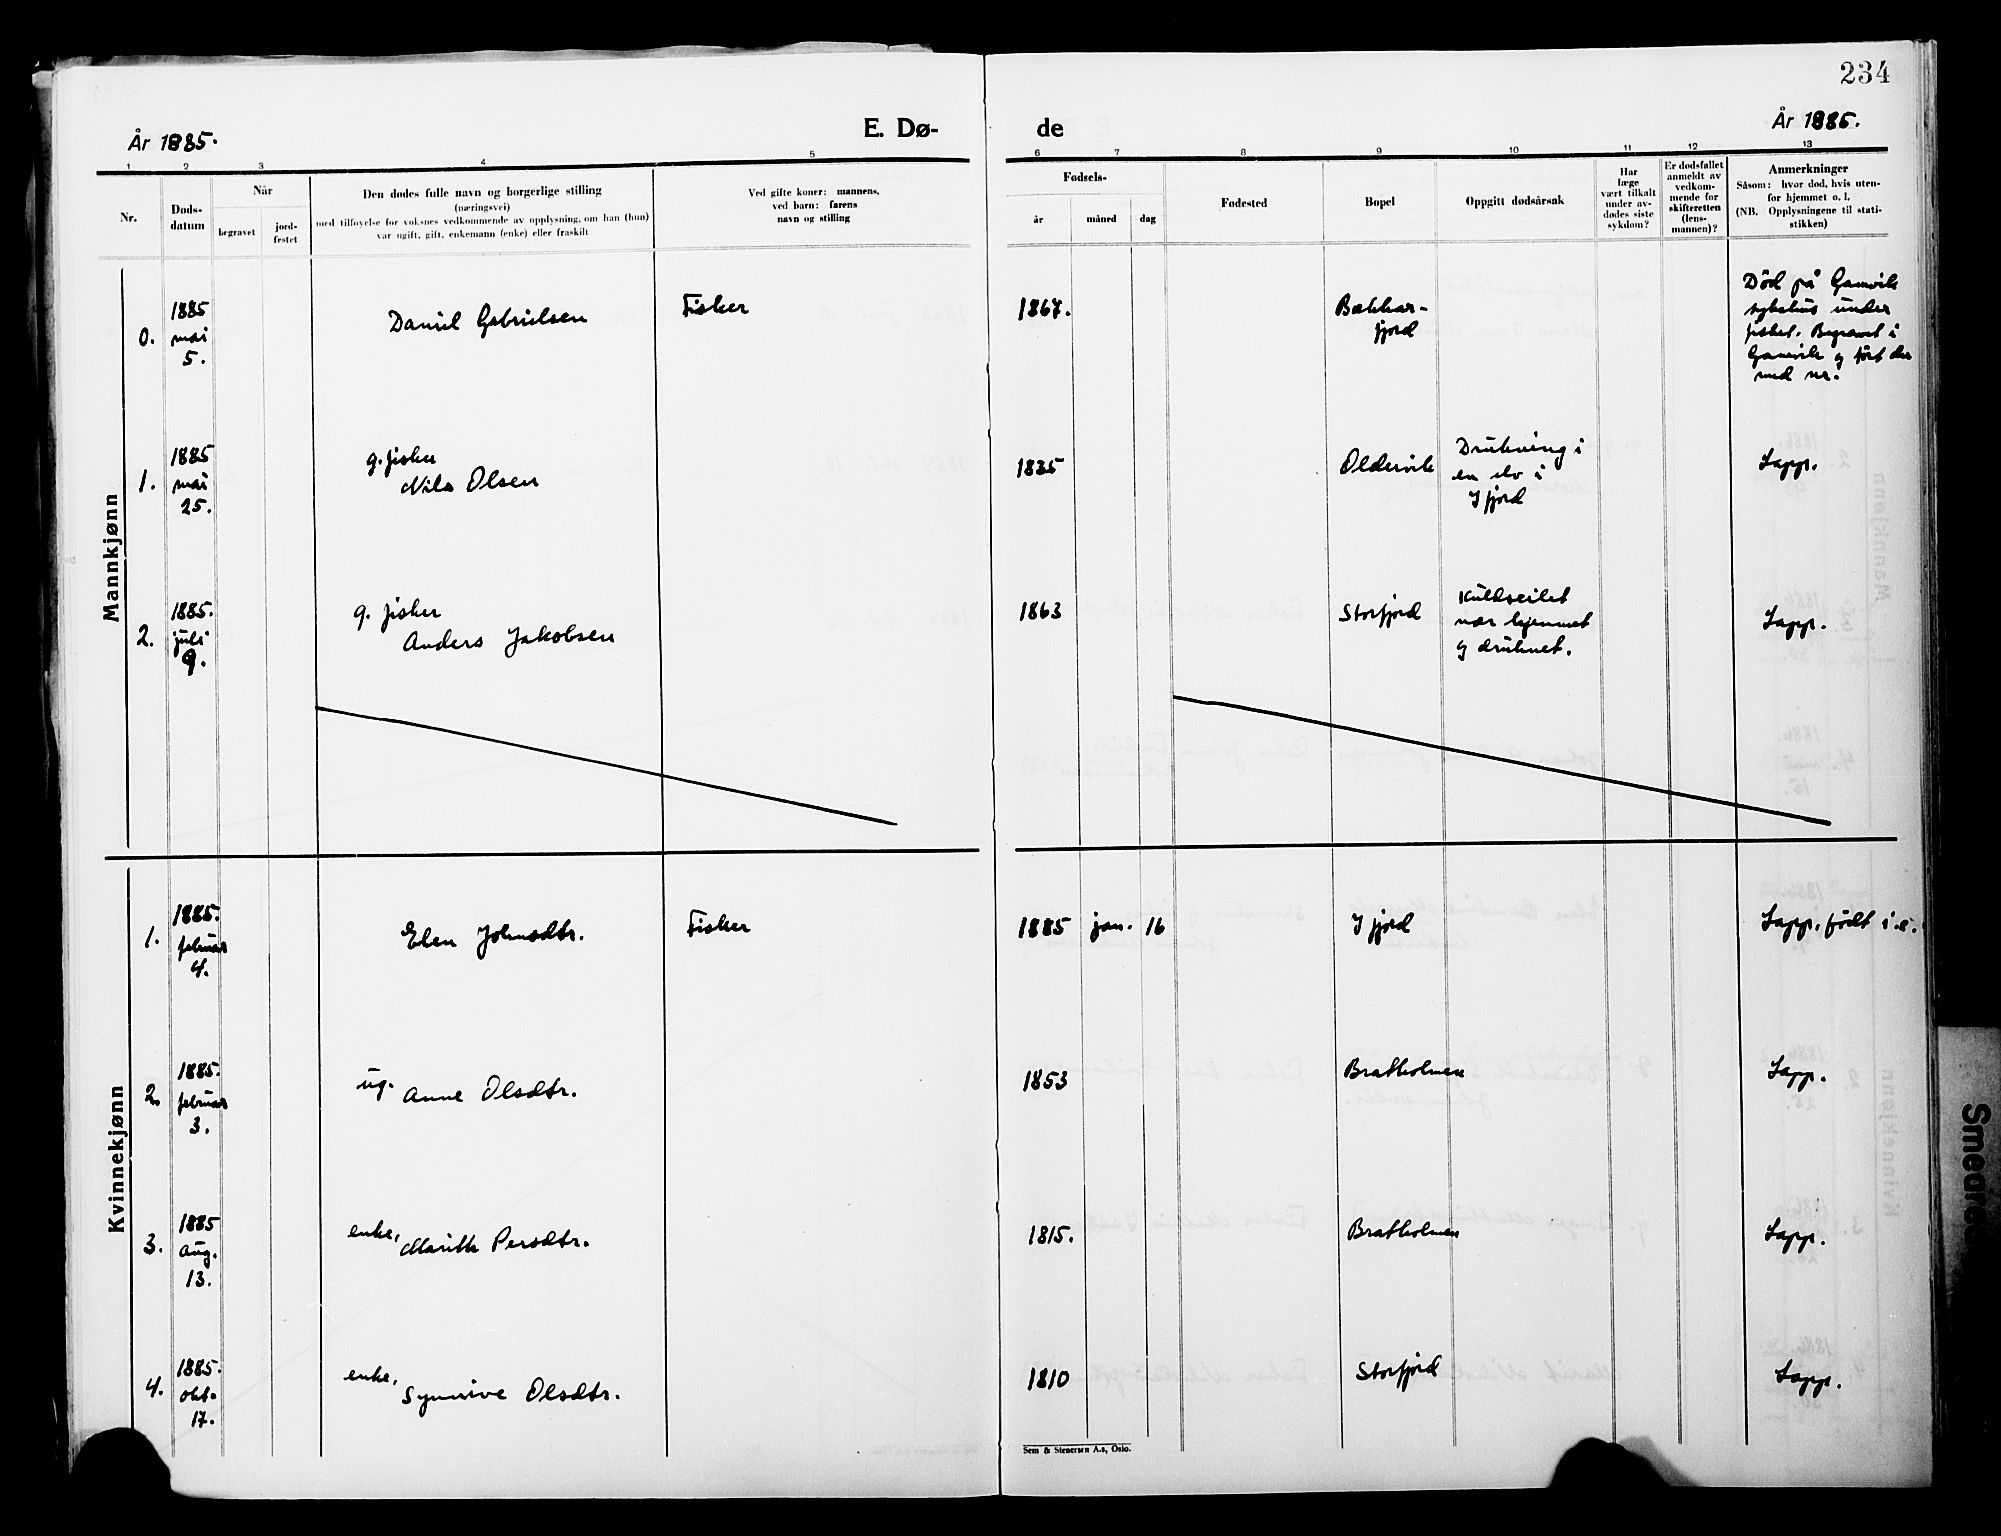 234
År 1885.
E. Dø-
de
År 1885.
1 2 3 4 5 6 7 8 9 10 11 12 13
Nr.
Døds-
datum
Når
begravet
jord-
festet
Den dødes fulle navn og borgerlige stilling
(næringsvei)
med tilføyelse for voksnes vedkommende av opplysning, om han (hun)
var ugift, gift, enkemann (enke) eller fraskilt
Ved gifte koner: mannens,
ved barn: farens
navn og stilling
Fødsels-
år
måned
dag
Fødested
Bopel
Oppgitt dødsårsak
Har
læge
vært tilkalt
under av-
dødes siste
sykdom?
Er dødsfallet
anmeldt av
vedkom-
mende for
skifteretten
(lens-
mannen)?
Anmerkninger
Såsom: hvor død, hvis uten-
for hjemmet o. l.
(NB. Opplysningene til stati-
stikken)
Mannkjønn
0.
1885
mai
5.
Daniel Gabrielsen
Fisker
1867.
Bekkar-
fjord
Död på Gamvik
sykehus under
fisket. Begravet i
Gamvik og fört der
med nr.
1.
1885
mai
25.
g. fisker
Nils Olsen
1835
Oldervik
Drukning i
en elv i
Ifjord
Lapp.
2.
1885.
juli
9.
g. fisker
Anders Jakobsen
1863
Storfjord
Kullseilet
nær hjemmet
og druknet.
Lapp.
Kvinnekjønn
1.
1885.
februar
4.
Elen Johnsdtr.
Fisker
1885 jan. 16
Ifjord
Lapp. födt i.e.
2.
1885.
februar
3.
ug.
Anne Olsdtr.
1853
Bratholmen
Lapp.
3.
1885
aug.
13.
enke,
Marith Persdtr.
1815.
Bratholmen
Lapp.
4.
1885.
okt.
17.
enke,
Synnive Olsdtr.
1810
Storfjord
Lapp.
Sem & Stenersen A.s, Oslo.